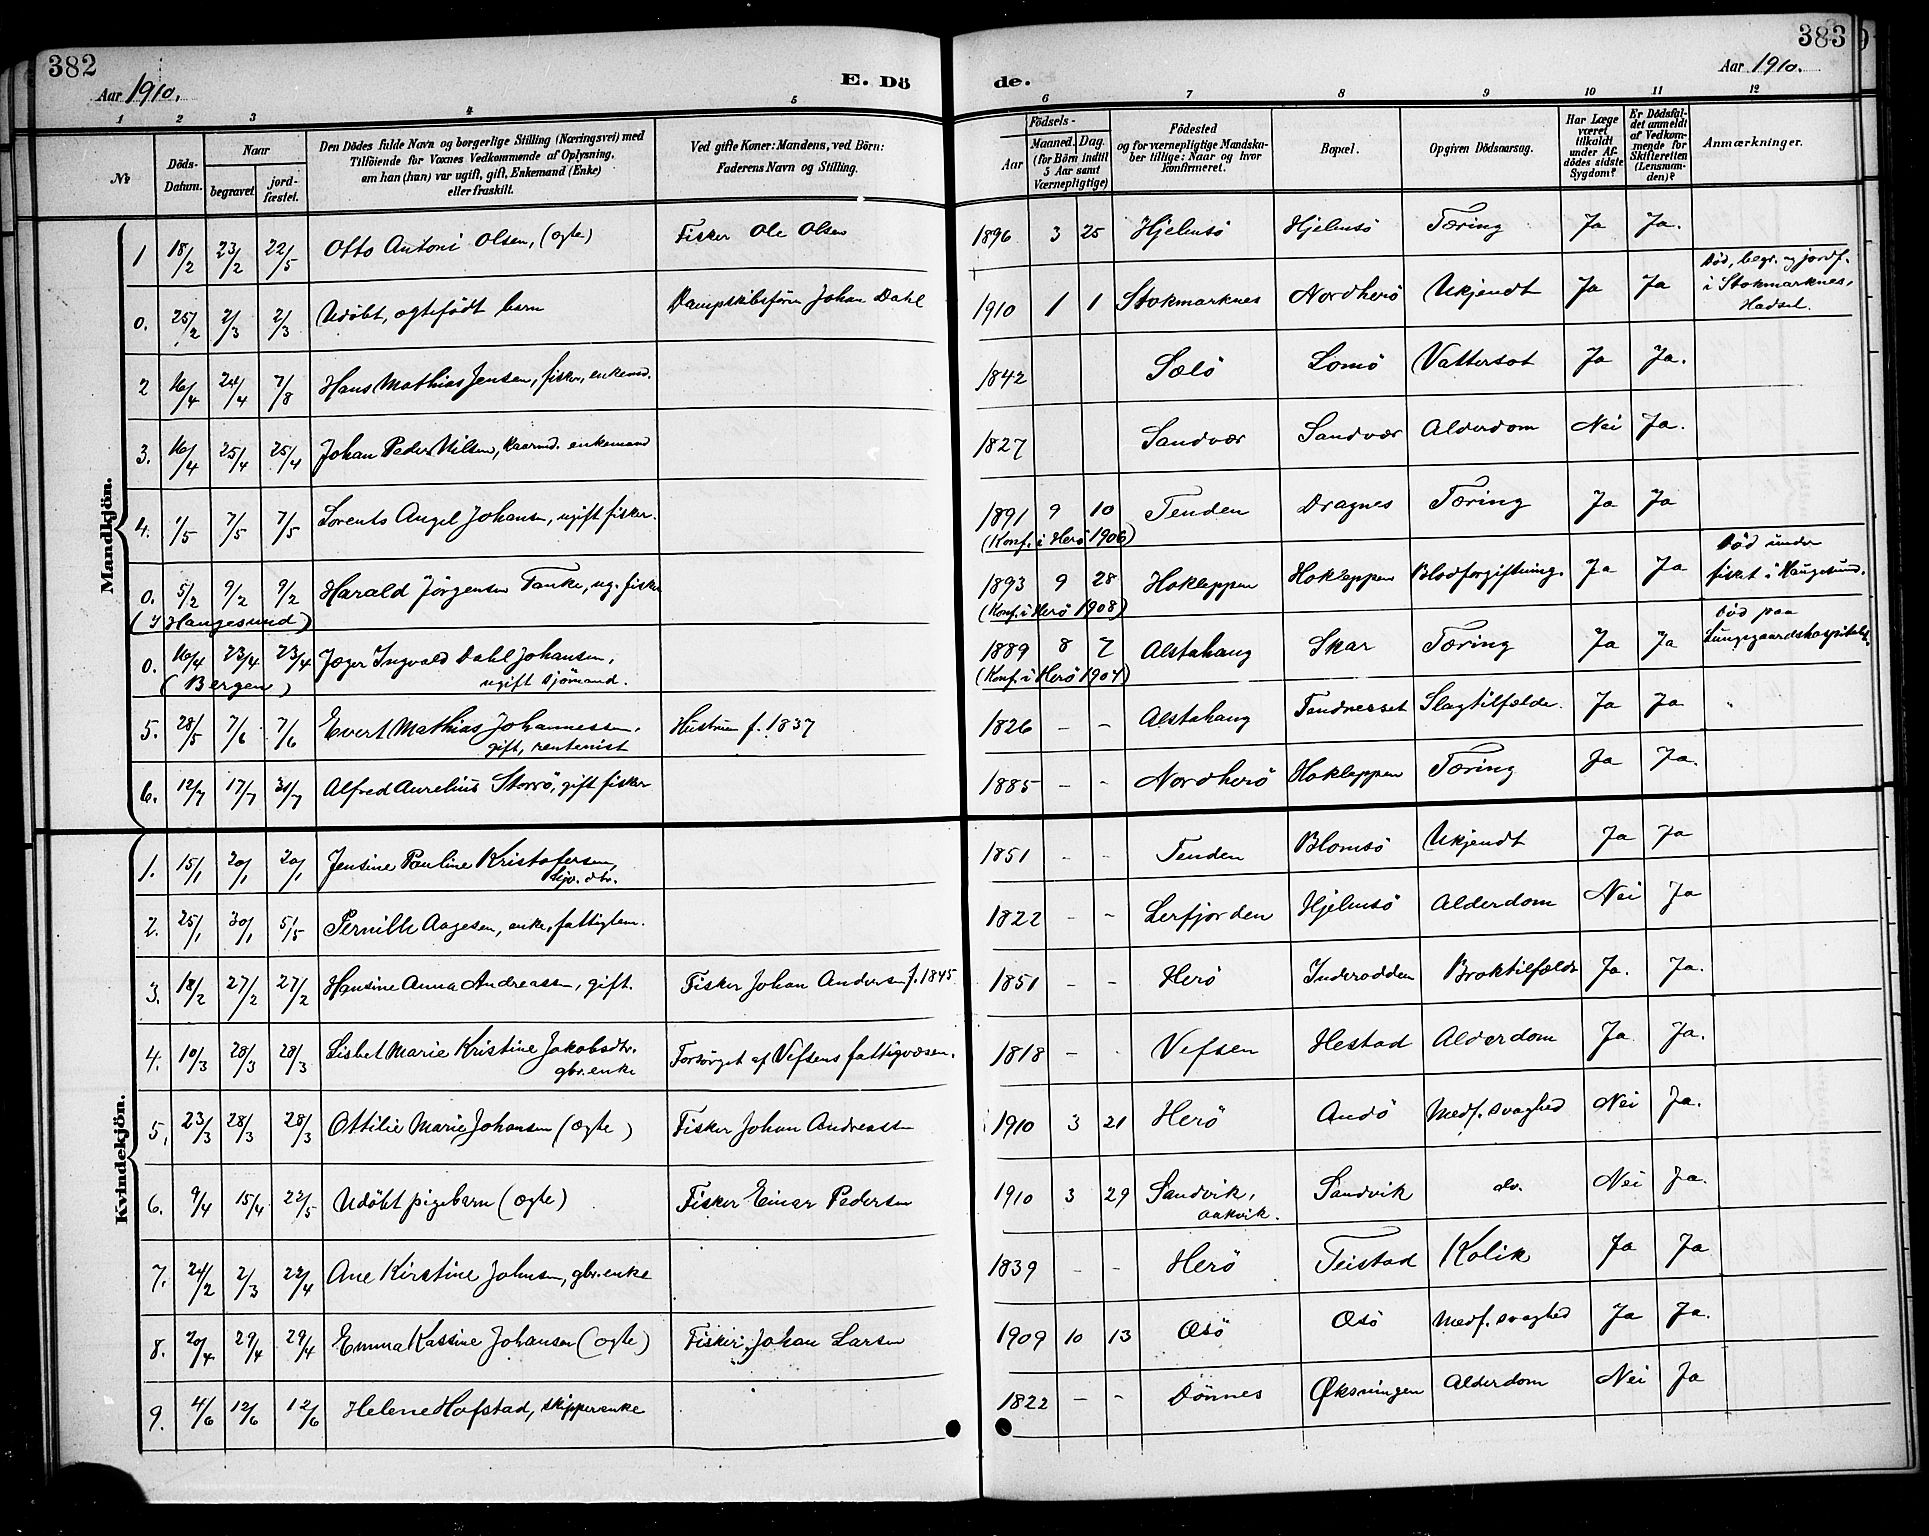 382
383
Aar 1910.
E. Dö
de.
Aar 1910.
1 2 3 4 5 6 7 8 9 10 11 12
№
Döds-Datum.
Naar
begravet.
jord-fæstet.
Den Dödes fulde Navn og borgerlige Stilling (Næringsvei) med
Tilföiende for Voxnes Vedkommende af Oplysning,
om han (hun) var ugift, gift, Enkemand (Enke)
eller fraskilt.
Ved gifte Koner: Mandens, ved Börn:
Faderens Navn og Stilling.
Födsels-
Aar
Maaned. Dag.
(for Börn indtil
5 Aar samt
Værnepligtige)
Födested
og for værnepligtige Mandska-
ber tillige: Naar og hvor
konfirmeret.
Bopæl.
Opgiven Dödsaarsag.
Har Læge
været
tilkaldt
under Af-
dödes sidste
Sygdom?
Er Dödsfal-
det anmeldt
af Vedkom-
mende for
Skifteretten
(Lensman-
den)?
Anmærkninger.
Mandkjön.
1 18/2 23/2 22/5 Otto Antoni Olsen, (ægte) Fisker Ole Olsen 1896 3 25 Hjelmsö Hjelmsö Tæring Ja Ja.
0. 25/2 2/3 2/3 Udöbt, ægtefödt barn Dampskibsförer Johan Dahl 1910 1 1 Stokmarknes Nordherö Ukjendt Ja Ja Död, begr. og jordf.
i Stokmarknes,
Hadsel.
2 16/4 24/4 7/8 Hans Mathias Jensen, fisker, enkemd. 1842 Sælö Lomö Vattersot Ja Ja.
3. 16/4 25/4 25/4 Johan Peder Nilsen, kaarmd. enkemand 1827 Sandvær Sandvær Alderdom Nei Ja.
4. 1/5 7/5 7/5 Lorents Angel Johansen, ugift fisker. 1891 9 10 Tenden Dragnes Tæring Ja Ja
(Konf. i Herö 1906)
0. 5/2 9/2 9/2 Harald Jörgensen Tanke, ug. fisker 1893 9 28 Hokleppen Hokleppen Blodforgiftning. Ja Ja Död under
fisket i Haugesund.
(I Haugesund)
(Konf. i Herö 1908)
0. 16/4 23/4 23/4 Jæger Ingvald Dahl Johansen,
ugift sjömand. 1889 8 7 Alstahaug Skar Tæring Ja Ja Död paa
Lungegaardshospitalet
(Bergen)
(Konf. i Herö 1904)
5. 28/5 7/6 7/6 Evert Mathias Johannessen,
gift, rentenist Hustrun f. 1837 1826 – – Alstahaug Tendnesset Slagtilfælde. Ja Ja
6. 12/7 17/7 31/7 Alfred Aurelius Storrö, gift fisker 1885 – – Nordherö Hokleppen Tæring Ja Ja.
Kvindekjön.
1. 15/1 20/1 20/1 Jensine Pauline Kristofersen, 1851 – – Tenden Blomsö Ukjendt Ja Ja
2. 25/1 30/1 5/5 Pernille Aagesen, enke, fattiglem. 1822 – – Lerfjorden Hjelmsö Alderdom Nei Ja
3. 18/2 27/2 27/2 Hansine Anna Andreassen, gift. Fisker Johan Andersen f. 1845 1851 – – Herö Inderodden Broktilfælde Ja. Ja.
4. 10/3 28/3 28/3 Lisbet Marie Kristine Jakobsdtr.
gbr. enke Forsörget af Vefsens fattigvæsen. 1818 – – Vefsen Hestad Alderdom Ja Ja.
5. 23/3 28/3 28/3 Ottilie Marie Johansen (ægte) Fisker Johan Andreassen 1910 3 21 Herö Andö Medf. svaghed Nei Ja.
6. 9/4 15/4 22/5 Udöbt pigebarn (ægte) Fisker Einar Pedersen 1910 3 29 Sandvik,
Aakvik. Sandvik do. Nei Ja.
7. 24/2 2/3 24/4 Ane Kirstine Johnsen, gbr. enke 1839 – – Herö Teistad Kolik Ja Ja
8. 20/4 29/4 29/4 Emma Kassine Johansen (ægte) Fisker Johan Larsen 1909 10 13 Æsö Æsö Medf. svaghed Ja Ja.
9. 4/6 12/6 12/6 Helene Hofstad, skipperenke 1822 – – Dönnes Øksningen Alderdom Nei Ja